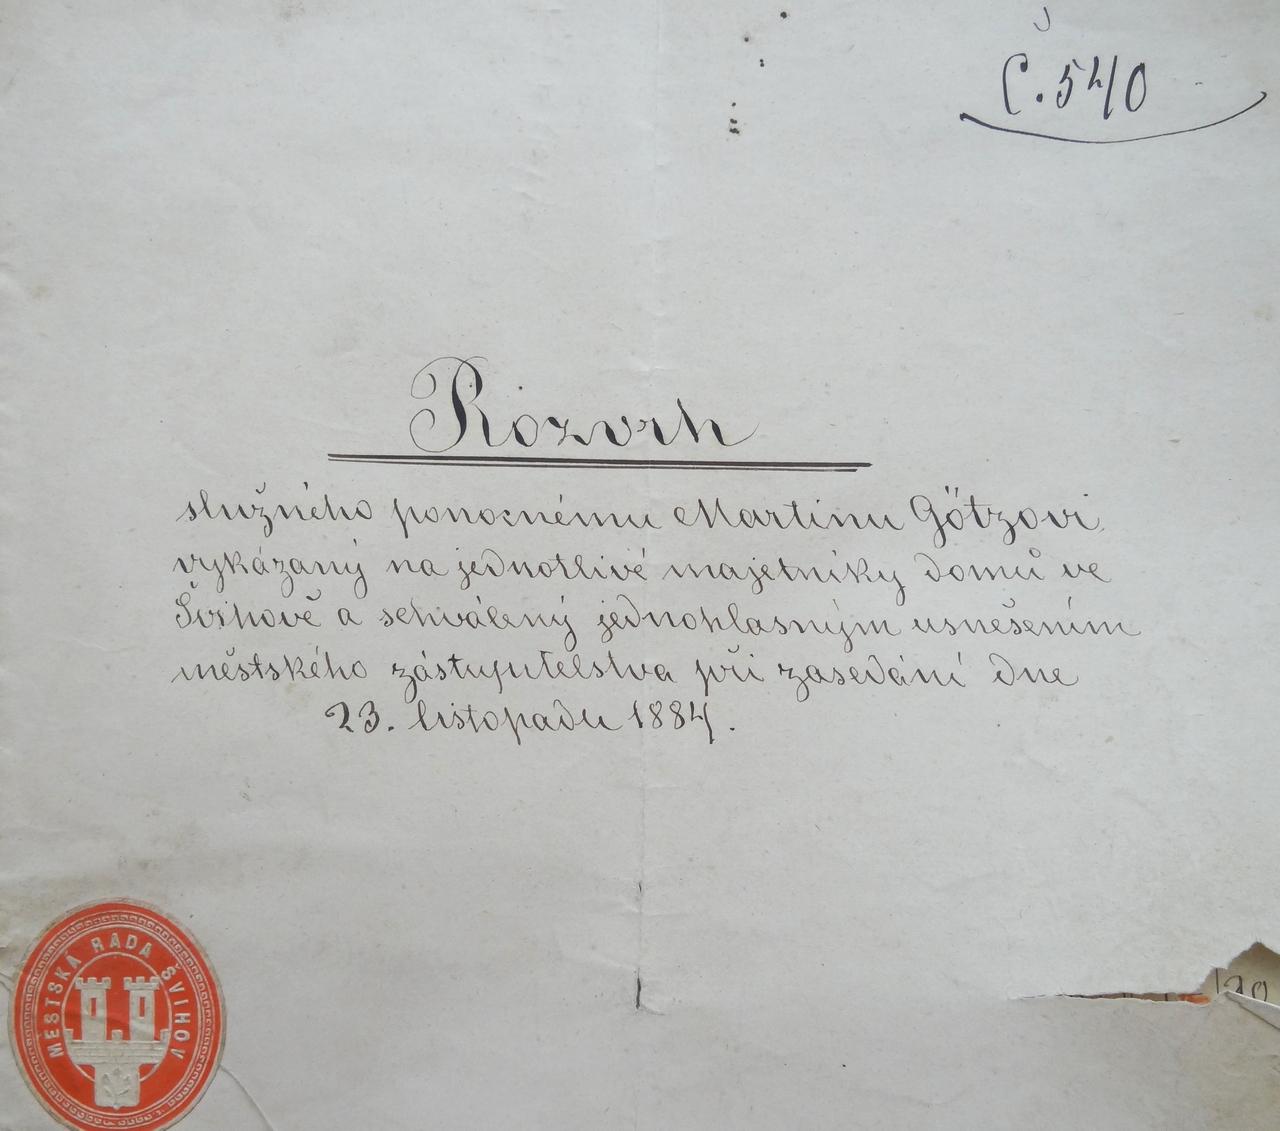 Č. 540
Rozvrh
služného ponocnému Martinu Götzovi,
vykázaný na jednotlivé majetníky domů ve
Švihově a schválený jednohlasným usnešením
městského zástupitelstva při zasedání dne
23. listopadu 1884.
MĚSTSKÁ RADA ŠVIHOV